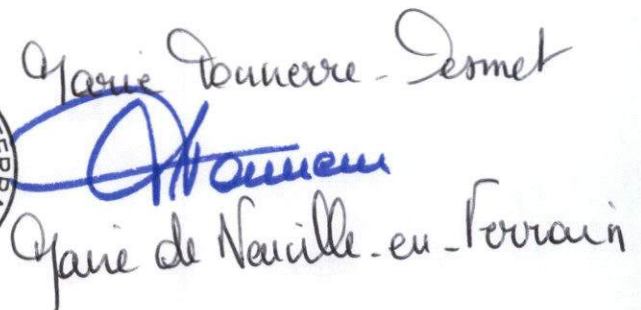 Marie Tonnerre-Desmet
Maire de Neuville-en-Ferrain